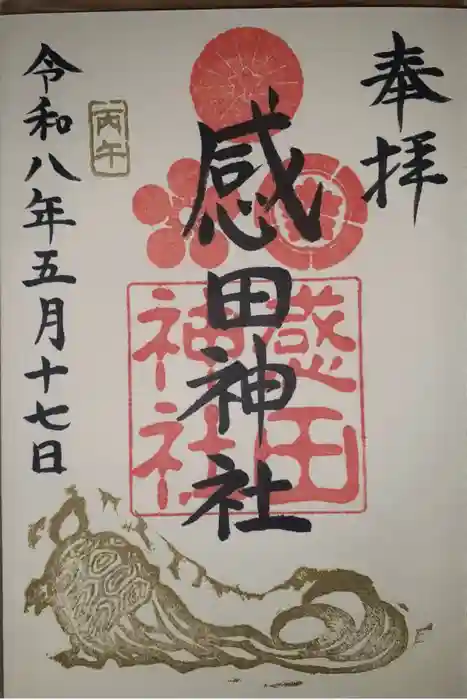 奉拝
感田神社
感田
神社
令和八年五月十七日
丙午